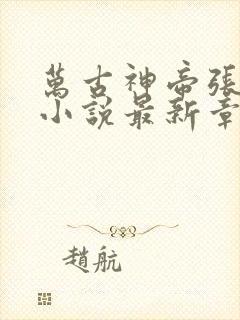 萬古神帝張
小說最新章
趙航